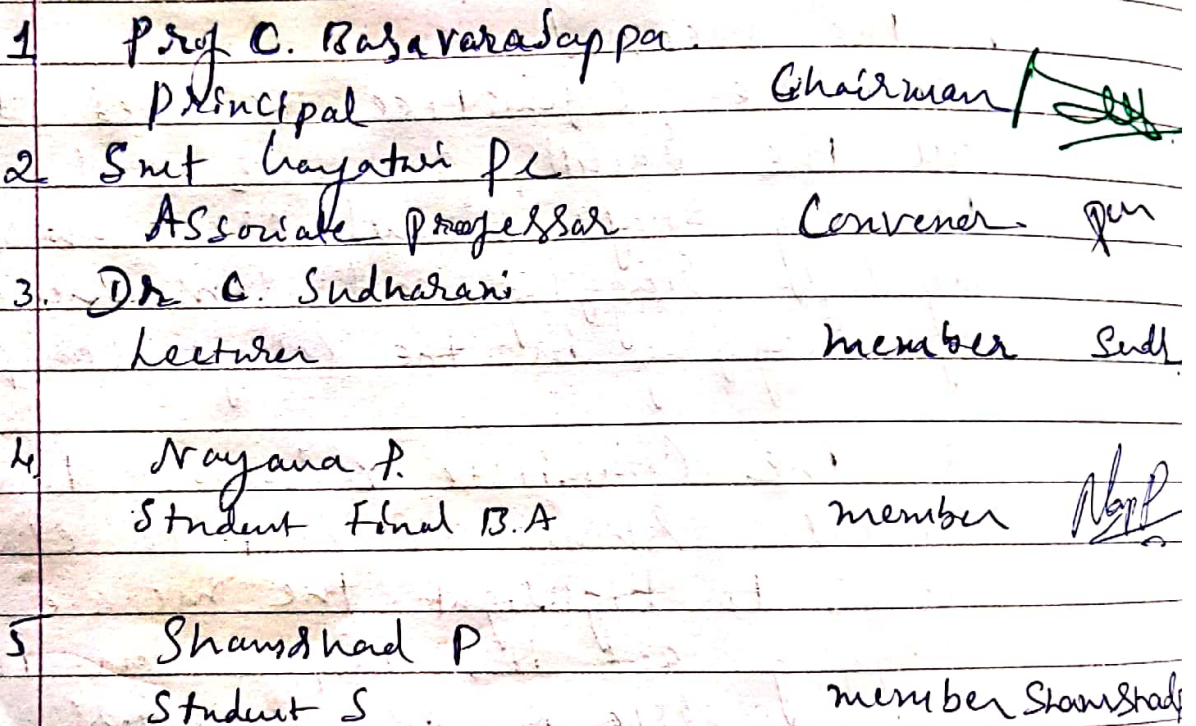 1 Prof C. Basavaradappa.
Principal Chairman
2 Smt Gayatri P C
Associate professor Convener.
3. Dr. C. Sudharani
Lecturer member Sudh
4 Nayana P.
Student Final B.A member
5 Shamshad P
Student S member Shamshad